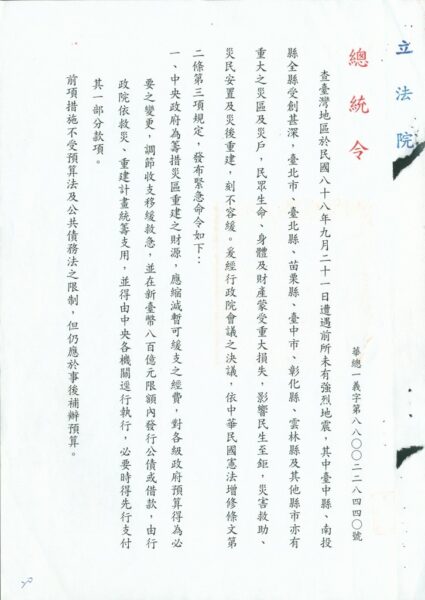 立法院
總統令
華總一義字第八八〇〇二二八四四〇號
查臺灣地區於民國八十八年九月二十一日遭遇前所未有強烈地震，其中臺中縣、南投
縣全縣受創甚深，臺北市、臺北縣、苗栗縣、臺中市、彰化縣、雲林縣及其他縣市亦有
重大之災區及災戶，民眾生命、身體及財產蒙受重大損失，影響民生至鉅，災害救助、
災民安置及災後重建，刻不容緩。爰經行政院會議之決議，依中華民國憲法增修條文第
二條第三項規定，發布緊急命令如下：
一、中央政府為籌措災區重建之財源，應縮減暫可緩支之經費，對各級政府預算得為必
要之變更，調節收支移緩救急，並在新臺幣八百億元限額內發行公債或借款，由行
政院依救災、重建計畫統籌支用，並得由中央各機關逕行執行，必要時得先行支付
其一部分款項。
前項措施不受預算法及公共債務法之限制，但仍應於事後補辦預算。